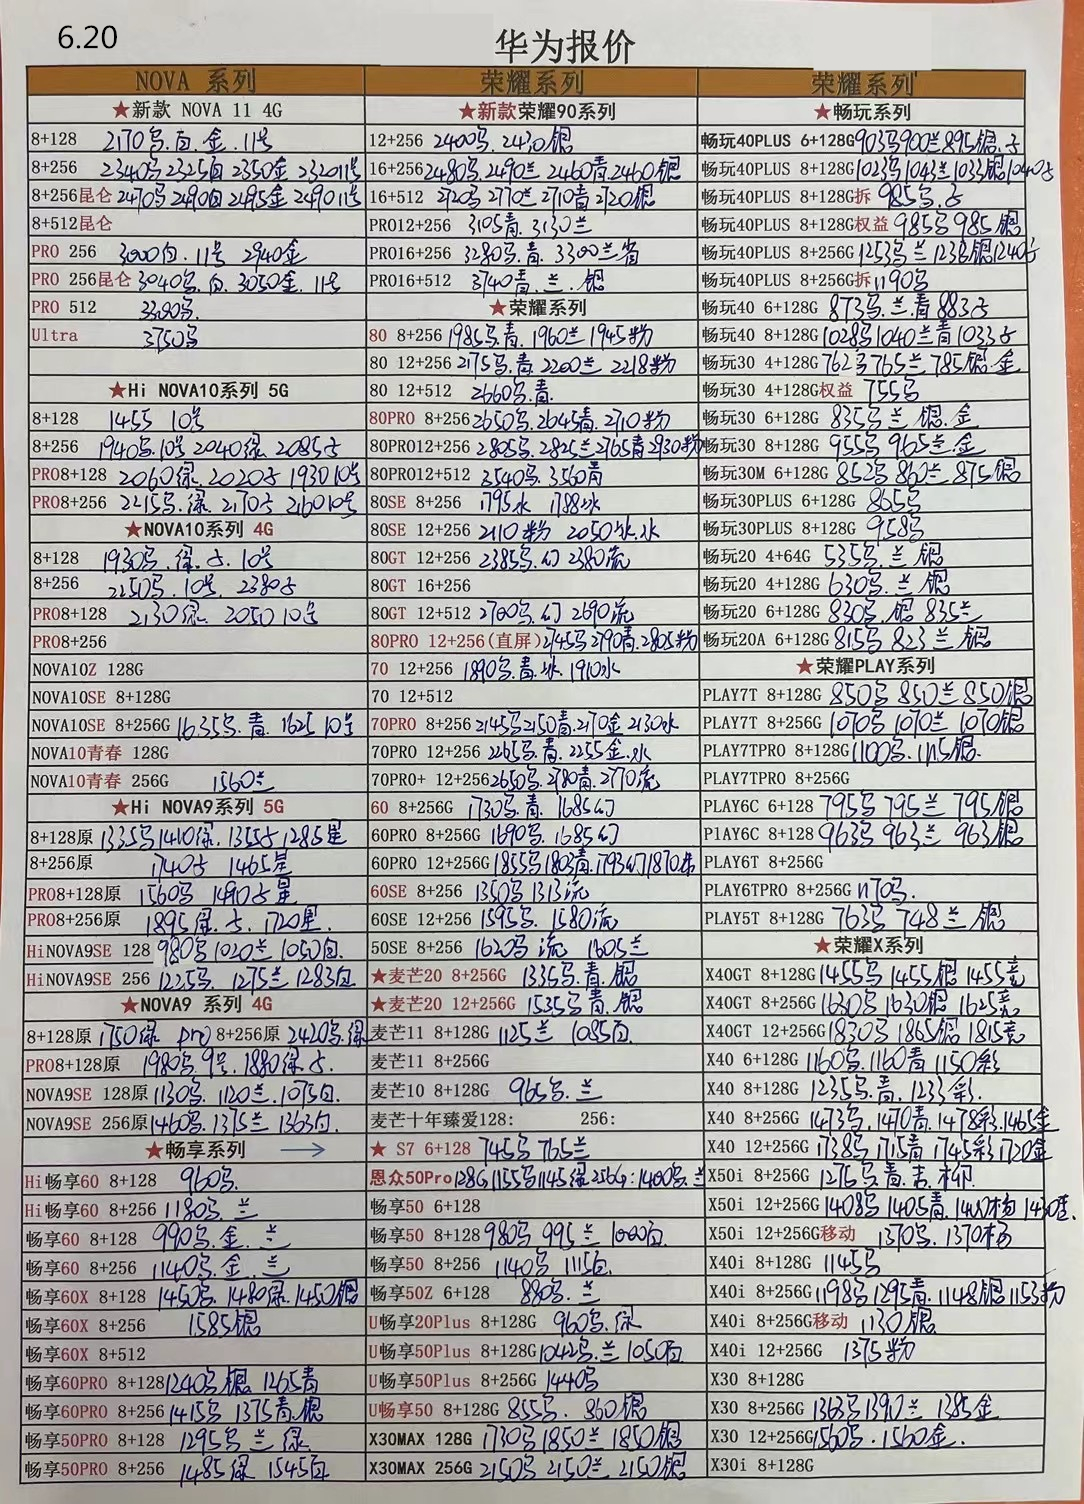 6.20
华为报价
NOVA 系列
★新款 NOVA 11 4G
8+128 2170乌.白.金.11号
8+256 2340乌2325白2350金 2320 11号
8+256昆仑 2470乌2490白2495金 2490 11号
8+512昆仑
PRO 256 3000白.11号 2940金
PRO 256昆仑 3040乌.白.3050金.11号
PRO 512 3300乌.
Ultra 3750乌
★Hi NOVA10系列 5G
8+128 1455 10号
8+256 1940乌.10号 2040绿 2085子
PRO8+128 2060绿.2020子 1930 10号
PRO8+256 2215乌.绿.2170子 2160 10号
★NOVA10系列 4G
8+128 1930乌.绿.子.10号
8+256 2250乌.10号.2380子
PRO8+128 2130绿.2050 10号
PRO8+256
NOVA10Z 128G
NOVA10SE 8+128G
NOVA10SE 8+256G 1635乌.青.1625 10号
NOVA10青春 128G
NOVA10青春 256G 1560兰
★Hi NOVA9系列 5G
8+128原 1335乌1410绿.1355子1285星
8+256原 1740子 1465星
PRO8+128原 1560乌 1490子星
PRO8+256原 1895绿.子.1720星.
HiNOVA9SE 128 980乌1020兰1050白.
HiNOVA9SE 256 1225乌.1275兰1283白
★NOVA9 系列 4G
8+128原 1750绿 pro 8+256原 2420乌.绿
PRO8+128原 1980乌.9号.1880绿.子.
NOVA9SE 128原 1130乌.1120兰.1075白.
NOVA9SE 256原 1460乌.1375兰1363白.
★畅享系列 →
Hi畅享60 8+128 960乌.
Hi畅享60 8+256 1180乌.兰
畅享60 8+128 990乌.金.兰
畅享60 8+256 1140乌.金.兰
畅享60X 8+128 1450乌.1480绿.1450银
畅享60X 8+256 1585银
畅享60X 8+512
畅享60PRO 8+128 1240乌银1265青
畅享60PRO 8+256 1415乌 1375青.银
畅享50PRO 8+128 1295乌兰绿
畅享50PRO 8+256 1485绿 1545白
荣耀系列
★新款荣耀90系列
12+256 2400乌.2430银
16+256 2480乌.2490兰 2460青2460银
16+512 2720乌2770兰2710青2720银
PRO12+256 3105青.3130兰
PRO16+256 3280乌.青.3300兰
PRO16+512 3740青.兰.银
★荣耀系列
80 8+256 1985乌.青.1960兰1945粉
80 12+256 2175乌.青.2200兰 2218粉
80 12+512 2660乌.青.
80PRO 8+256 2650乌.2645青.2710粉
80PRO12+256 2805乌.2825兰2765青2930粉
80PRO12+512 3540乌.3560青
80SE 8+256 1795水 1788冰
80SE 12+256 2110粉 2050冰.水
80GT 12+256 2385乌.幻 2380流
80GT 16+256
80GT 12+512 2700乌.幻 2690流
80PRO 12+256(直屏) 2745乌2790青.2805粉
70 12+256 1890乌.青.冰 1910水
70 12+512
70PRO 8+256 2145乌2150青.2170金 2130水
70PRO 12+256 2265乌.青.2255金.水
70PRO+ 12+256 2650乌.2780青.2770流
60 8+256G 1730乌.青.1685幻
60PRO 8+256G 1690乌.1685幻
60PRO 12+256G 1855乌1803青.1793幻1870朱
60SE 8+256 1350乌1313流
60SE 12+256 1595乌.1580流
50SE 8+256 1620乌 流 1605兰
★麦芒20 8+256G 1335乌.青.银
★麦芒20 12+256G 1535乌青.银
麦芒11 8+128G 1125兰 1085白
麦芒11 8+256G
麦芒10 8+128G 965乌.兰
麦芒十年臻爱128: 256:
★ S7 6+128 745乌 765兰
恩众50Pro 128G 1155乌1145绿 256G:1400乌.兰
畅享50 6+128
畅享50 8+128 980乌 995兰 1000白
畅享50 8+256 1140乌 1115白
畅享50Z 6+128 880乌.兰
U畅享20Plus 8+128G 960乌.绿
U畅享50Plus 8+128G 1042乌.兰1050白
U畅享50Plus 8+256G 1440乌
U畅享50 8+128G 855乌.860银
X30MAX 128G 1730乌1850兰1850银
X30MAX 256G 2150乌2150兰2150银
荣耀系列
★畅玩系列
畅玩40PLUS 6+128G 903乌900兰895银.子
畅玩40PLUS 8+128G 1023乌1043兰1033银1040子
畅玩40PLUS 8+128G拆 985乌.子
畅玩40PLUS 8+128G权益 985乌985银
畅玩40PLUS 8+256G 1253乌兰1238银1240子
畅玩40PLUS 8+256G拆 1190乌
畅玩40 6+128G 873乌.兰.青 883子
畅玩40 8+128G 1028乌1040兰青1033子
畅玩30 4+128G 762乌765兰785银.金
畅玩30 4+128G权益 755乌
畅玩30 6+128G 835乌兰银.金
畅玩30 8+128G 955乌 965兰.金
畅玩30M 6+128G 852乌860兰875银
畅玩30PLUS 6+128G 865乌
畅玩30PLUS 8+128G 958乌
畅玩20 4+64G 535乌.兰银
畅玩20 4+128G 630乌.兰银
畅玩20 6+128G 830乌.银835兰
畅玩20A 6+128G 815乌 823兰.银
★荣耀PLAY系列
PLAY7T 8+128G 850乌850兰850银
PLAY7T 8+256G 1070乌1070兰1070银
PLAY7TPRO 8+128G 1100乌.1115银.
PLAY7TPRO 8+256G
PLAY6C 6+128 795乌795兰795银
PlAY6C 8+128 963乌963兰963银
PLAY6T 8+256G
PLAY6TPRO 8+256G 1170乌.
PLAY5T 8+128G 763乌 748兰.银
★荣耀X系列
X40GT 8+128G 1455乌1455银1455竞
X40GT 8+256G 1630乌1630银1625竞
X40GT 12+256G 1830乌1865银1815竞
X40 6+128G 1160乌.1160青1150彩
X40 8+128G 1235乌.青.1233彩.
X40 8+256G 1473乌.1470青.1478彩.1465金
X40 12+256G 1738乌.1715青1745彩1720金
X50i 8+256G 1276乌青.杨
X50i 12+256G 1408乌1405青.1400杨
X50i 12+256G移动 1370乌.1370杨
X40i 8+128G 1145乌
X40i 8+256G 1198乌1295青.1148银1153粉
X40i 8+256G移动 1130银
X40i 12+256G 1375粉
X30 8+128G
X30 8+256G 1363乌1390兰1385金
X30 12+256G 1560乌.1560金.
X30i 8+128G